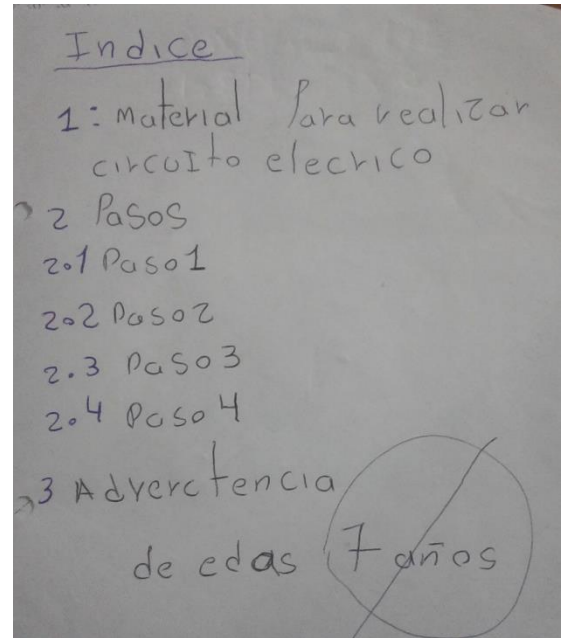 Indice
1: Material Para realizar
circuIto electrico
2 Pasos
2.1 Paso1
2.2 Paso2
2.3 Paso3
2.4 Paso4
3 Adverctencia
de edas 7 años